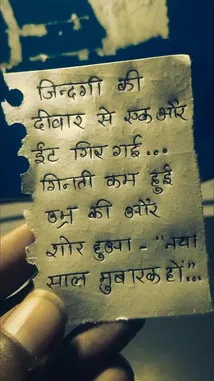 ज़िन्दगी की
दीवार से एक और
ईंट गिर गई...
गिनती कम हुई
उम्र की और
शोर हुआ - "नया
साल मुबारक हों"...